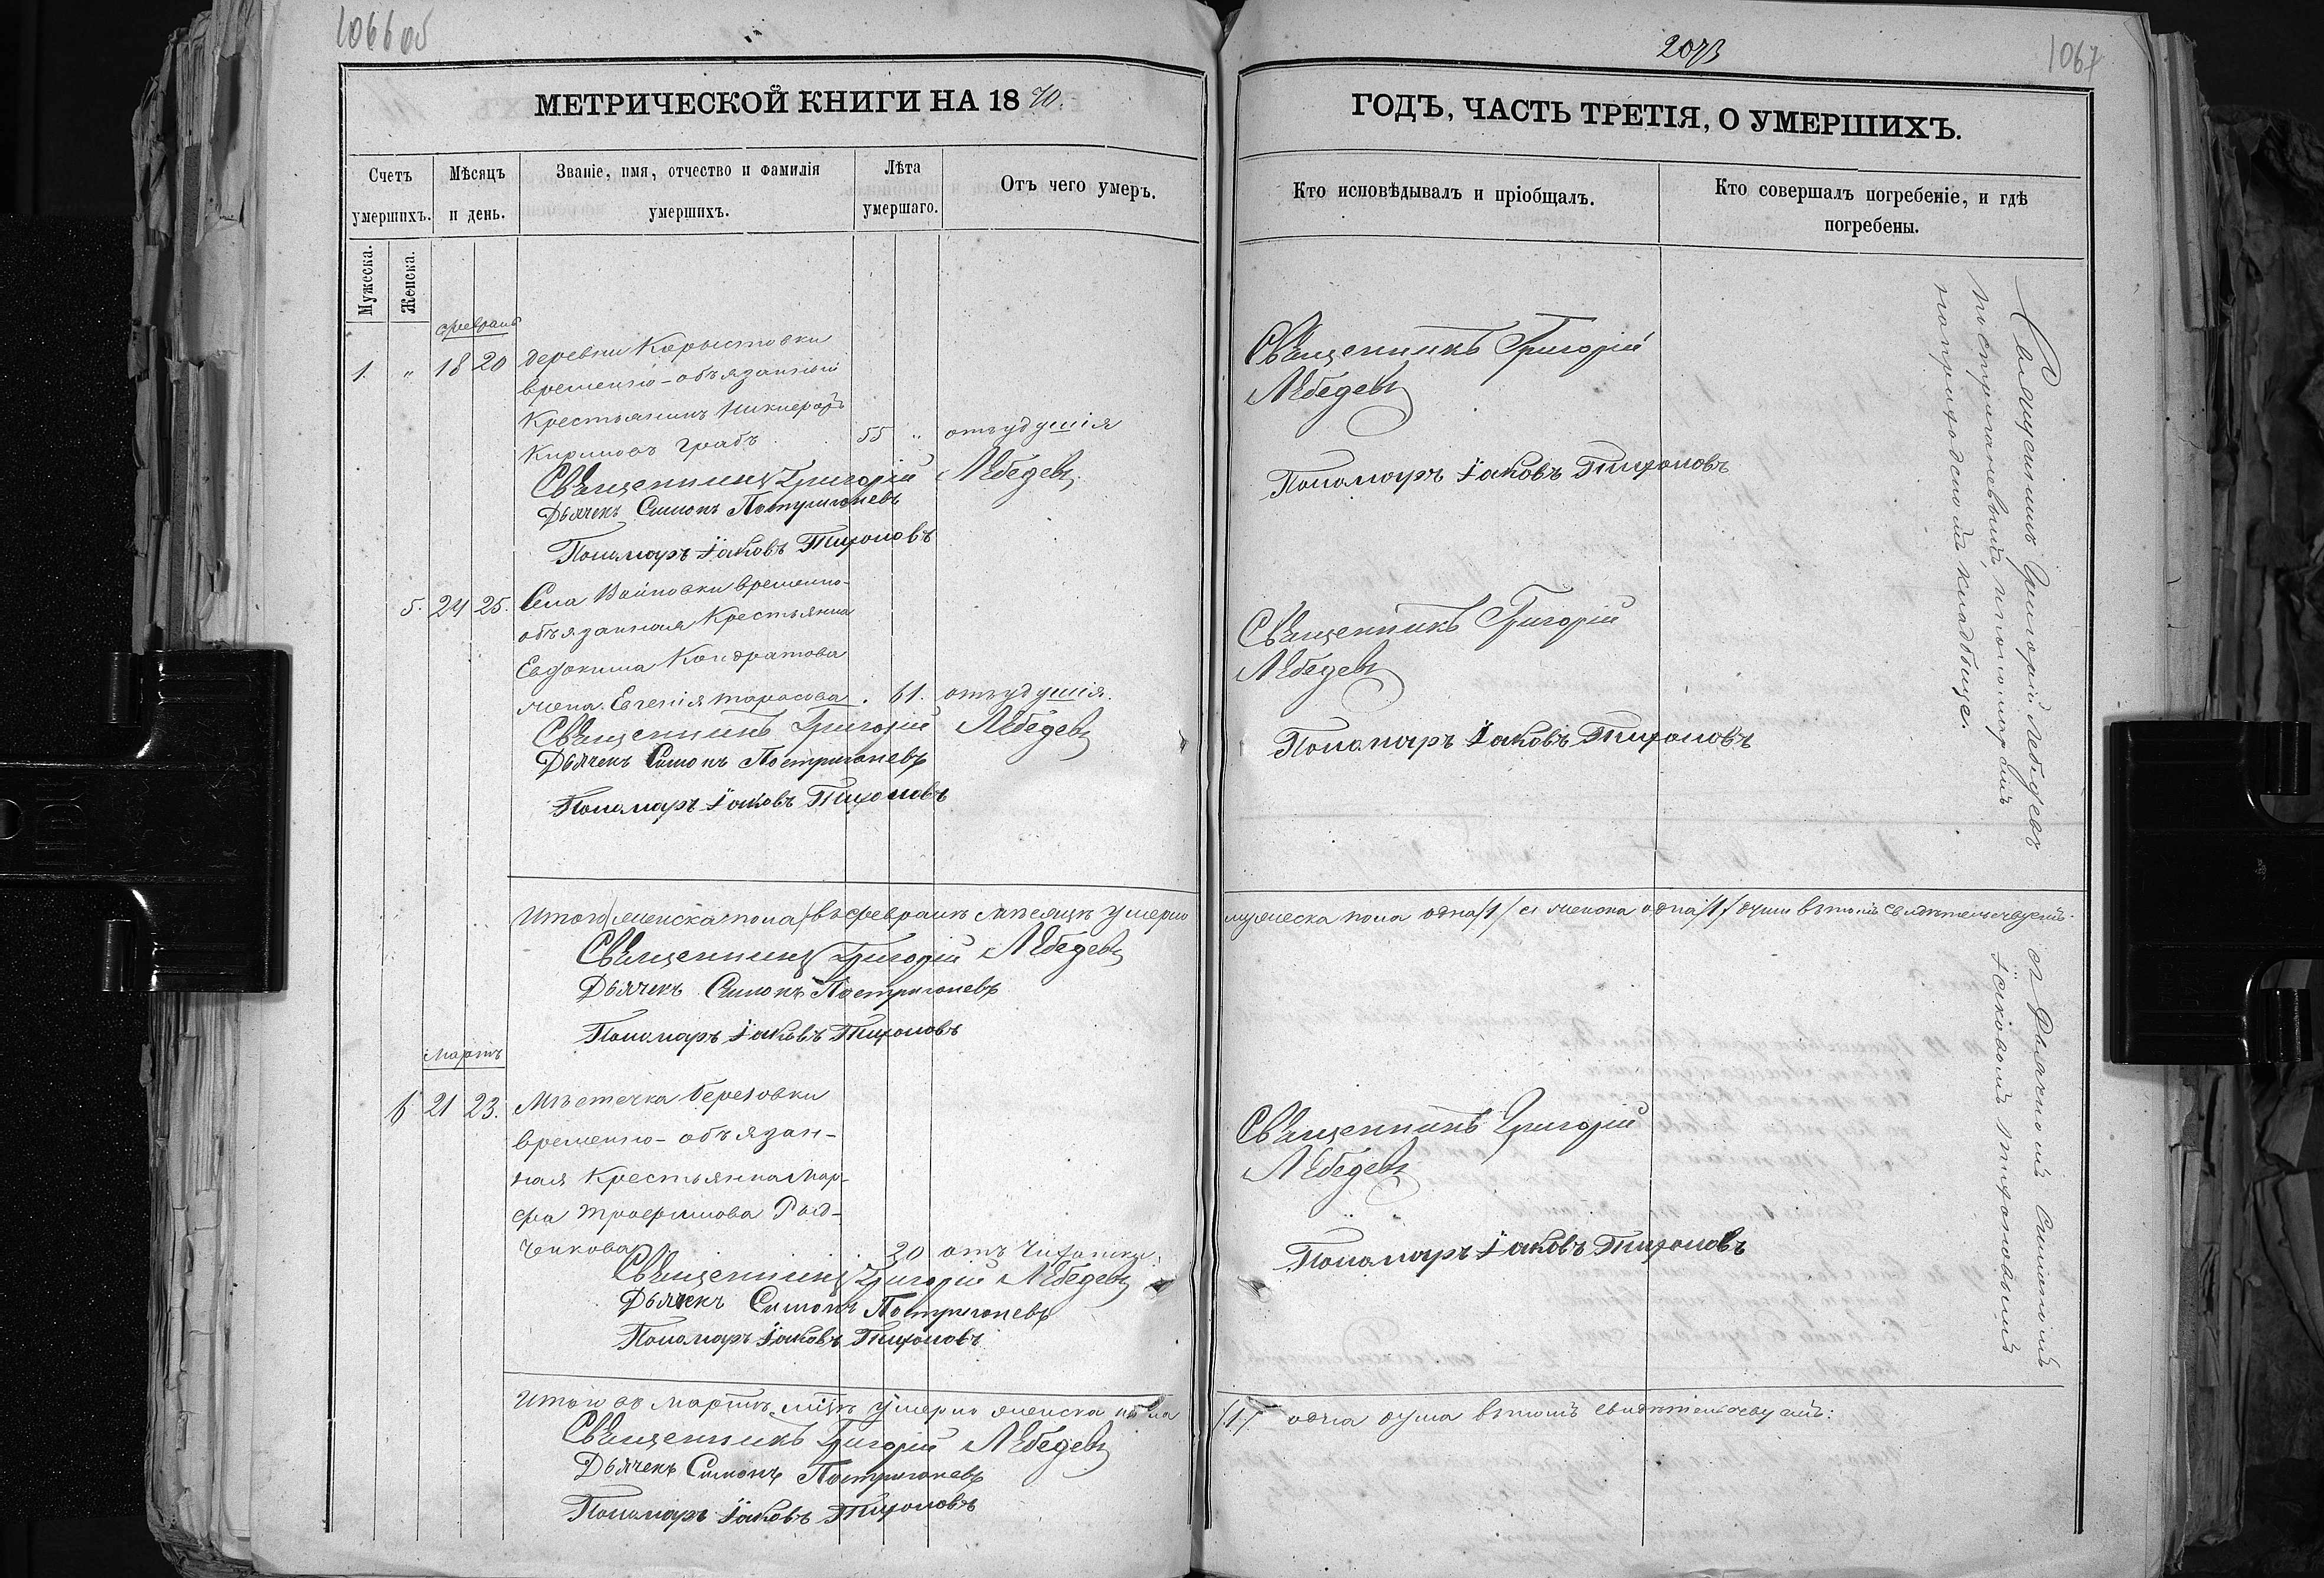 1066об
МЕТРИЧЕСКОЙ КНИГИ НА 1870.
Счетъ умершихъ.
Мужеска.
Женска.
Мѣсяцъ и день.
Званіе, имя, отчество и фамилія
умершихъ.
Лѣта
умершаго.
Отъ чего умеръ.
февраль
1. " 18 20 деревни Корыстовки
временно-обязанный
Крестьянинъ Никифоръ
Кириловъ Грабъ 55 " отъ удушія
Священникъ Григорій Лебедевъ
Дьячекъ Симонъ Постригачевъ
Пономарь Іаковъ Тихоновъ
5. 24 25. Села временно-
обязанная Крестьянка
Евдокима Кондратова
жена Евгенія Тарасова . 61. отъ удушія.
Священникъ Григорій Лебедевъ
Дьячекъ Симонъ Постригачевъ
Пономарь Іаковъ Тихоновъ
Итого (женска пола) въ февралѣ мѣсяцѣ умерло
Священникъ Григорій Лебедевъ
Дьячекъ Симонъ Постригачевъ
Пономарь Іаковъ Тихоновъ
Мартъ
6 21 23. Мѣстечка Березовки
временно-обязан-
ная Крестьянка Мар-
фа Трофимова
20 отъ чахотки.
Священникъ Григорій Лебедевъ
Дьячекъ Симонъ Постригачевъ
Пономарь Іаковъ Тихоновъ
Итого въ Мартѣ мцѣ умерло женска пола
Священникъ Григорій Лебедевъ
Дьячекъ Симонъ Постригачевъ
Пономарь Іаковъ Тихоновъ
1067
ГОДЪ, ЧАСТЬ ТРЕТІЯ, О УМЕРШИХЪ.
Кто исповѣдывалъ и пріобщалъ.
Кто совершалъ погребеніе, и гдѣ
погребены.
Священникъ Григорій
Лебедевъ
Пономарь Іаковъ Тихоновъ
Священникъ Григорій
Лебедевъ
Пономарь Іаковъ Тихоновъ
мужеска пола одна /1/ и женска одна /1/ души въ томъ свидѣтельствуемъ.
Священникъ Григорій
Лебедевъ
Пономарь Іаковъ Тихоновъ
/1/ одна душа въ томъ свидѣтельствуемъ:
Священникъ Григорій Лебедевъ
съ Дьячкомъ Симономъ
Постригачевымъ, и пономаремъ
Іаковомъ Тихоновымъ
на приходскомъ кладбище.